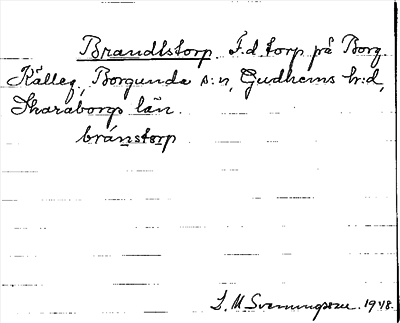 Brandtstorp F.d. torp på Borg.
Källeg., Borgunda s:n, Gudhems h:d,
Skaraborgs län.
bránstorp
S. M. Svenungsson. 1948.